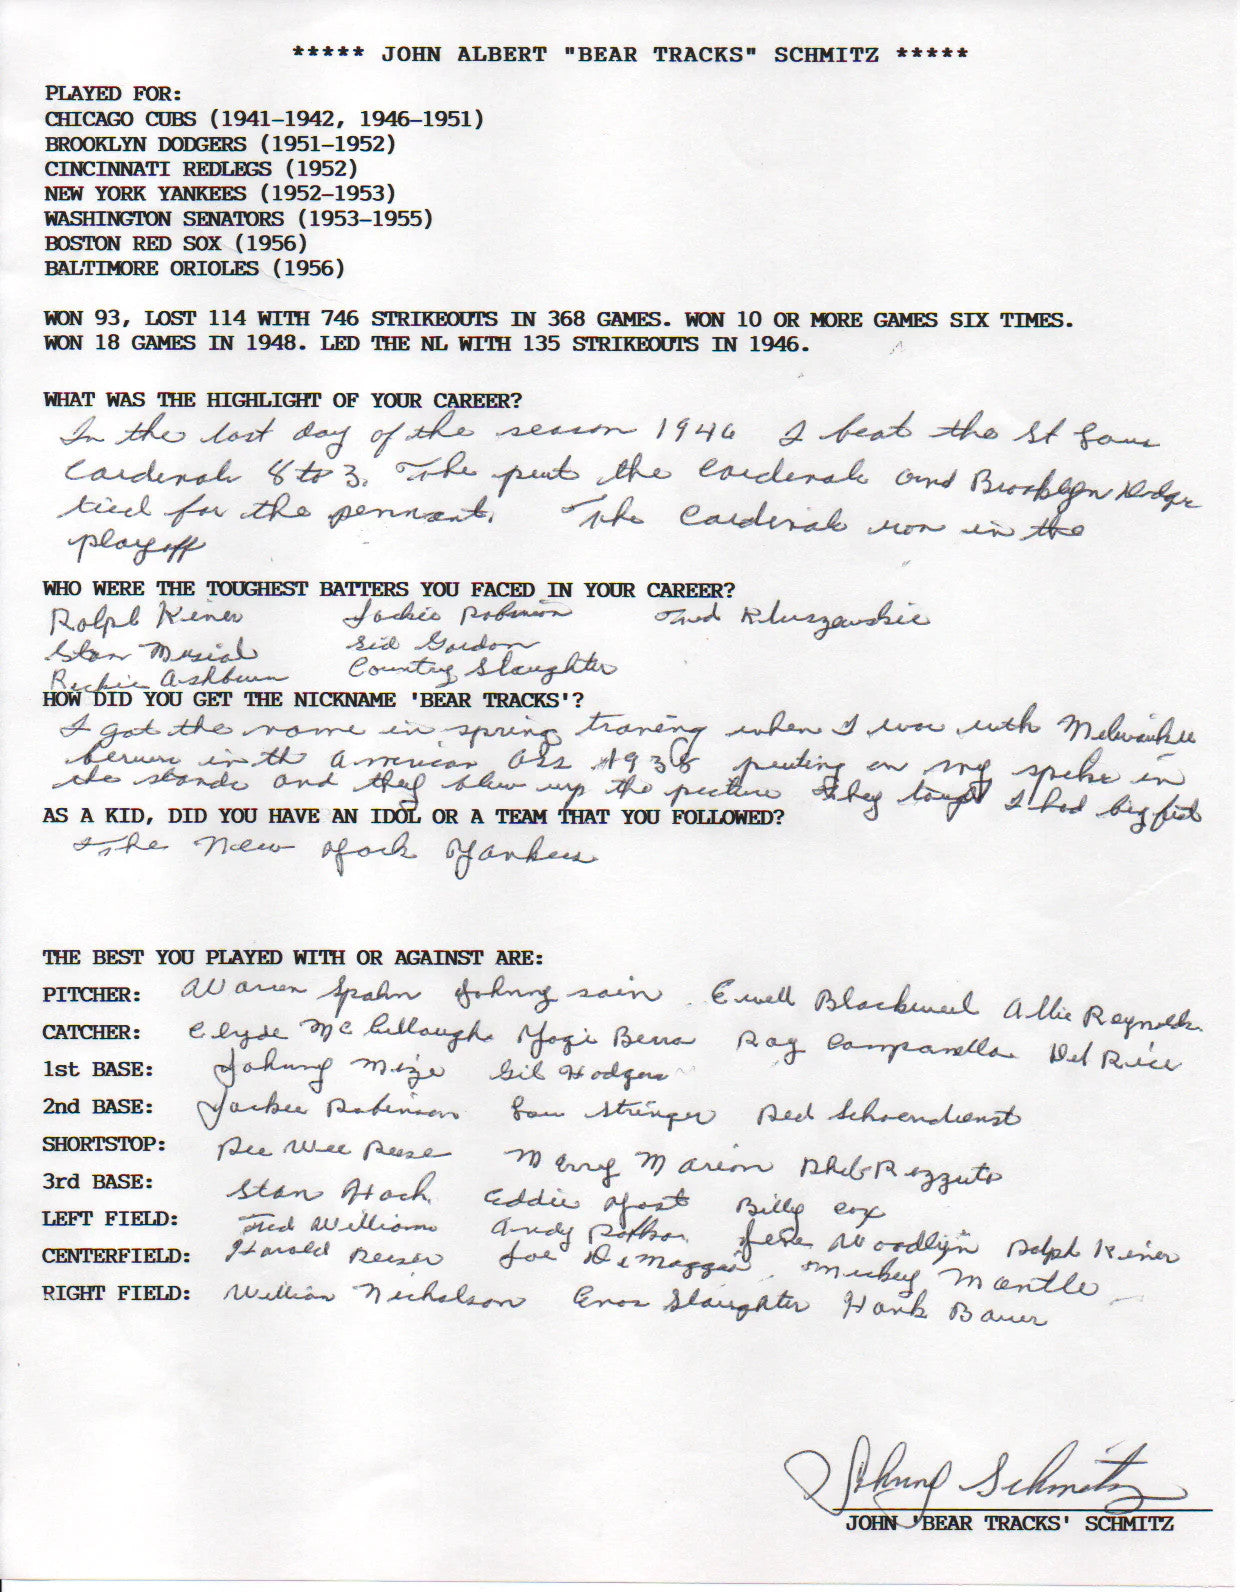 ***** JOHN ALBERT "BEAR TRACKS" SCHMITZ *****
PLAYED FOR:
CHICAGO CUBS (1941-1942, 1946-1951)
BROOKLYN DODGERS (1951-1952)
CINCINNATI REDLEGS (1952)
NEW YORK YANKEES (1952-1953)
WASHINGTON SENATORS (1953-1955)
BOSTON RED SOX (1956)
BALTIMORE ORIOLES (1956)
WON 93, LOST 114 WITH 746 STRIKEOUTS IN 368 GAMES. WON 10 OR MORE GAMES SIX TIMES.
WON 18 GAMES IN 1948. LED THE NL WITH 135 STRIKEOUTS IN 1946.
WHAT WAS THE HIGHLIGHT OF YOUR CAREER?
In the last day of the season 1946 I beat the St Louis
Cardinals 8 to 3. The put the Cardinals and Brooklyn Dodgers
tied for the pennant. The Cardinals won in the
playoff
WHO WERE THE TOUGHEST BATTERS YOU FACED IN YOUR CAREER?
Ralph Kiner Jackie Robinson Ted Kluszewskie
Stan Musial Sid Gordon
Richie Ashburn Country Slaughter
HOW DID YOU GET THE NICKNAME 'BEAR TRACKS'?
I got the name in spring traning when I was with Milwaukee
in th American Ass 1938 puting on my spike in
the stands and they blew up the picture they I had big feet
AS A KID, DID YOU HAVE AN IDOL OR A TEAM THAT YOU FOLLOWED?
The New York Yankees
THE BEST YOU PLAYED WITH OR AGAINST ARE:
PITCHER: Warren Spahn Johnny Sain Ewell Blackwell Allie Reynolds
CATCHER: Clyde McCullough Yogi Berra Roy Campanella Del Rice
1st BASE: Johnny Mize Gil Hodges
2nd BASE: Jackie Robinson Lou Stringer Red Schoendienst
SHORTSTOP: Pee Wee Reese Marion Phil Rizzuto
3rd BASE: Stan Hack Eddie Yost Billy Cox
LEFT FIELD: Ted Williams Andy Pafko Gene Woodlyn Ralph Kiner
CENTERFIELD: Harold Reiser Joe DiMaggio Mickey Mantle
RIGHT FIELD: William Nicholson Enos Slaughter Hank Bauer
Johnny Schmitz
JOHN 'BEAR TRACKS' SCHMITZ